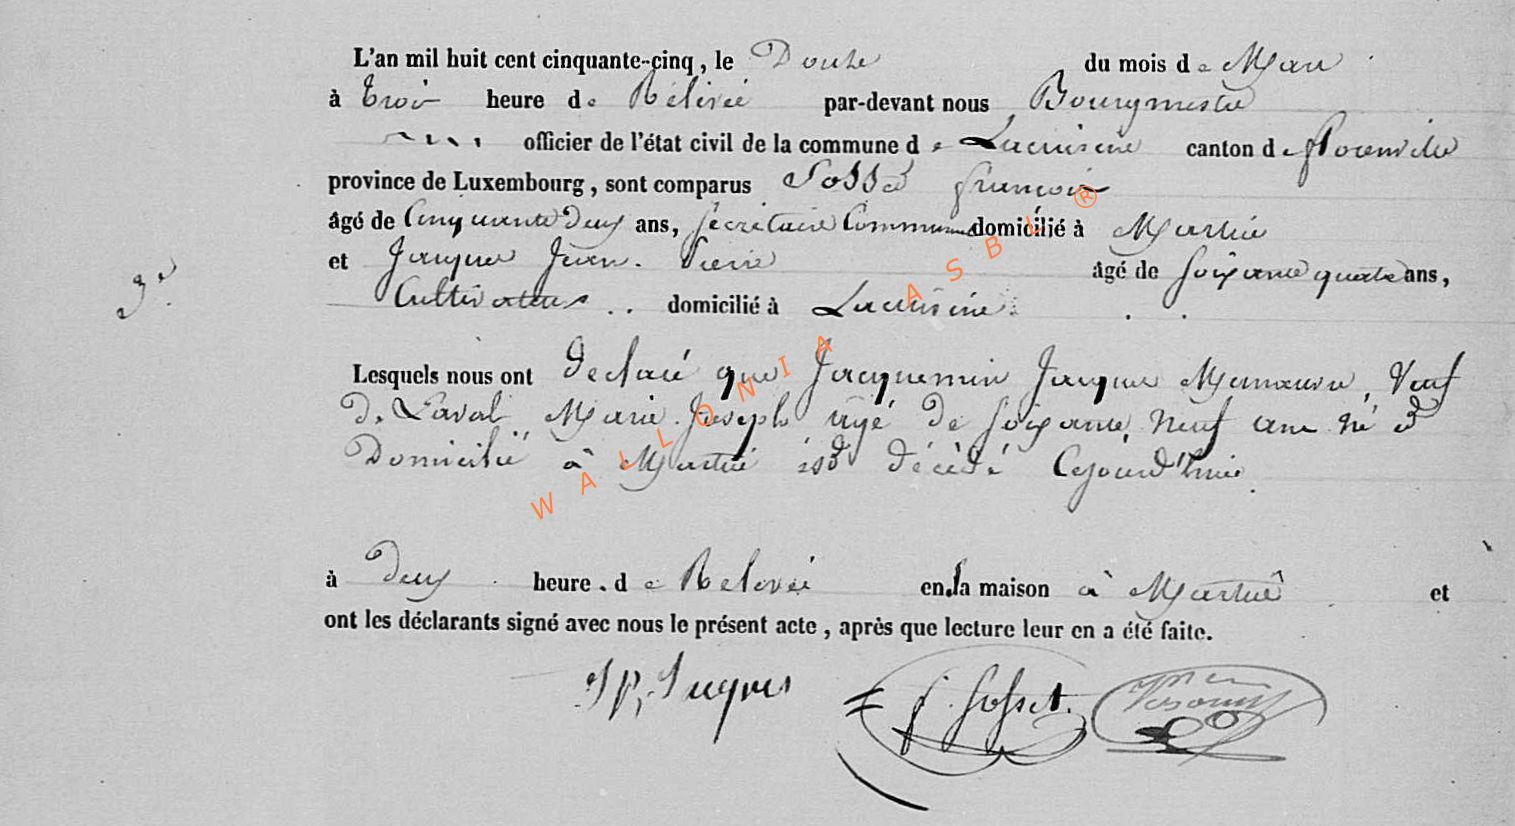 L'an mil huit cent cinquante-cinq, le Douze du mois de Mars
à trois heure de Rélévée par-devant nous Bourgmestre
officier de l'état civil de la commune de Lacuisine canton de florenville
province de Luxembourg, sont comparus françois
âgé de Cinquante Deux ans, Secrétaire Communal domicilié à Martué
et Jacques Jean. Pierre âgé de soixante quatre ans,
3e
Cultivateurs domicilié à Lacuisine
Lesquels nous ont Déclaré que Jacquemin Jacques Veuf
De Laval Marie Joseph âgé De soixante, Neuf ans né &
Domicilié à Martué est décédé Cejourd'hui
à Deux heure. de Relevée en la maison à Martué et
ont les déclarants signé avec nous le présent acte, après que lecture leur en a été faite.
JP, Jacques f. Gosset.
WALLONIA ASBL ®